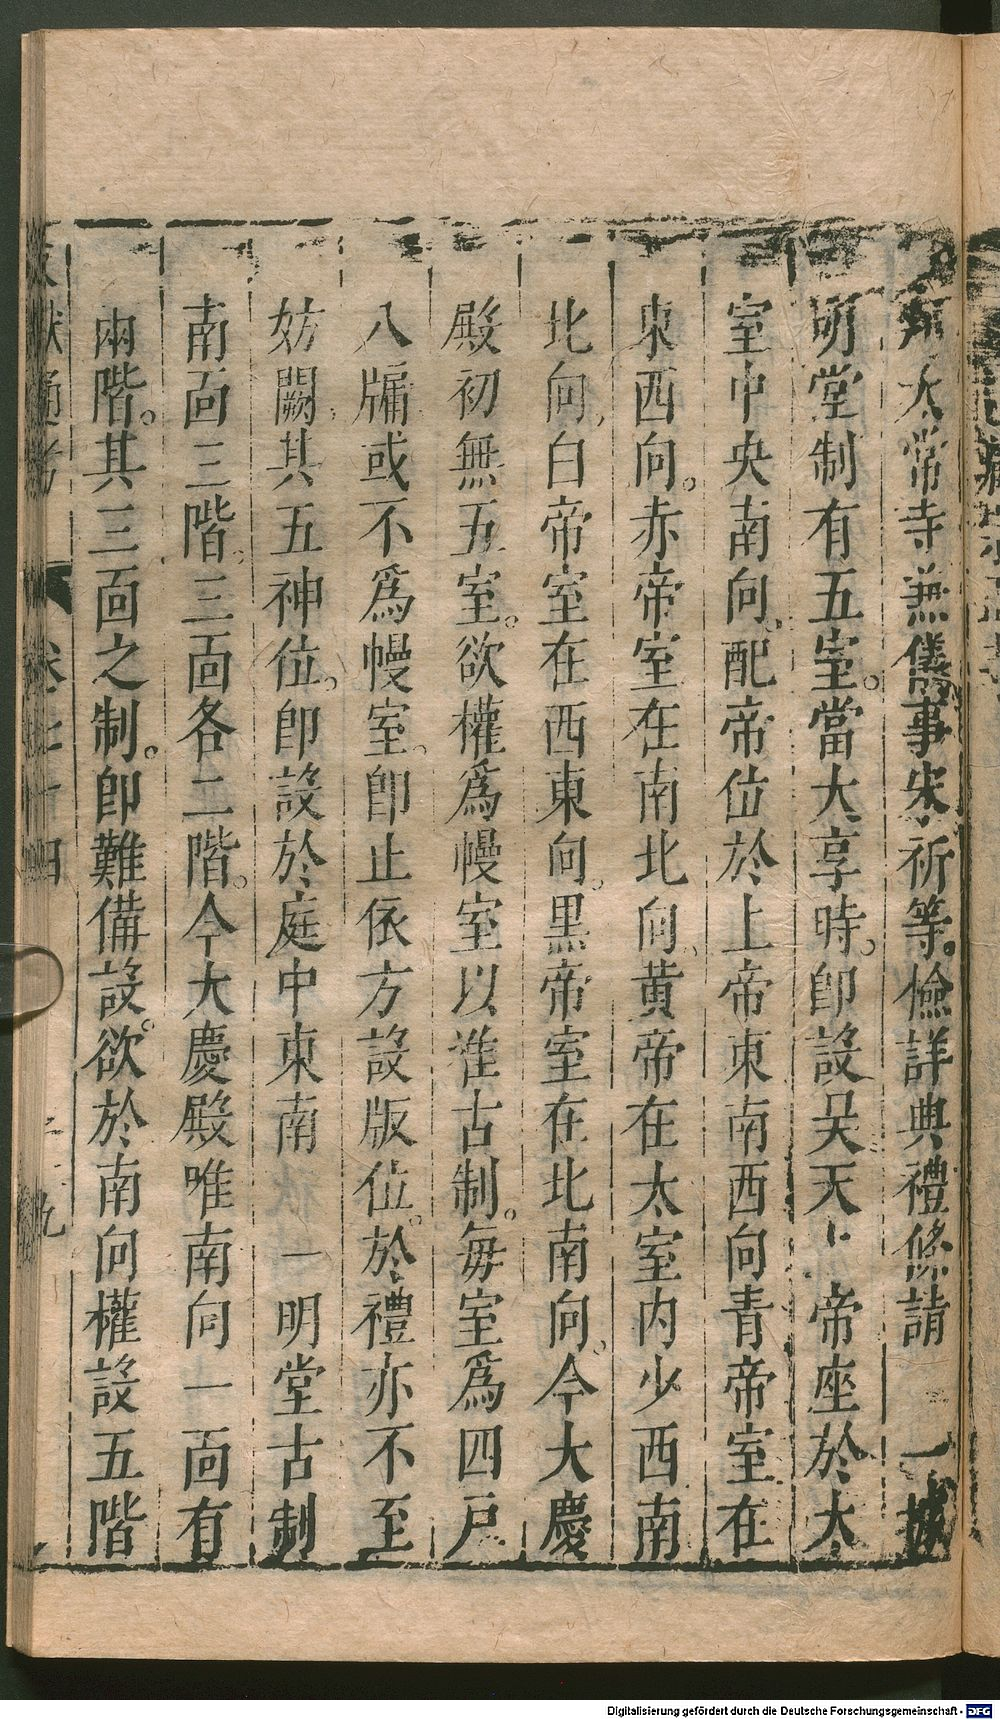 太常寺兼儀事宋祈等。儉詳典禮條請 一據
明堂制有五室。當大享時。卽設昊天上帝座於太
室中央南向。配帝位於上帝東南西向青帝室在
東西向。赤帝室在南北向黄帝在太室内少西南
北向白帝室在西東向。黑帝室在北南向。今大慶
殿初無五室。欲權爲幔室以准古制。每室爲四戸
八牖或不爲幔室。卽止依方設版位。於禮亦不至
妨闕其五神位。卽設於庭中東南 一明堂古制
南面三階。三面各二階。今大慶殿唯南向一面有
兩階。其三面之制。卽難備設。欲於南向權設五階
文獻通考 卷七十四 九
Digitalisierung gefördert durch die Deutsche Forschungsgemeinschaft - DFG